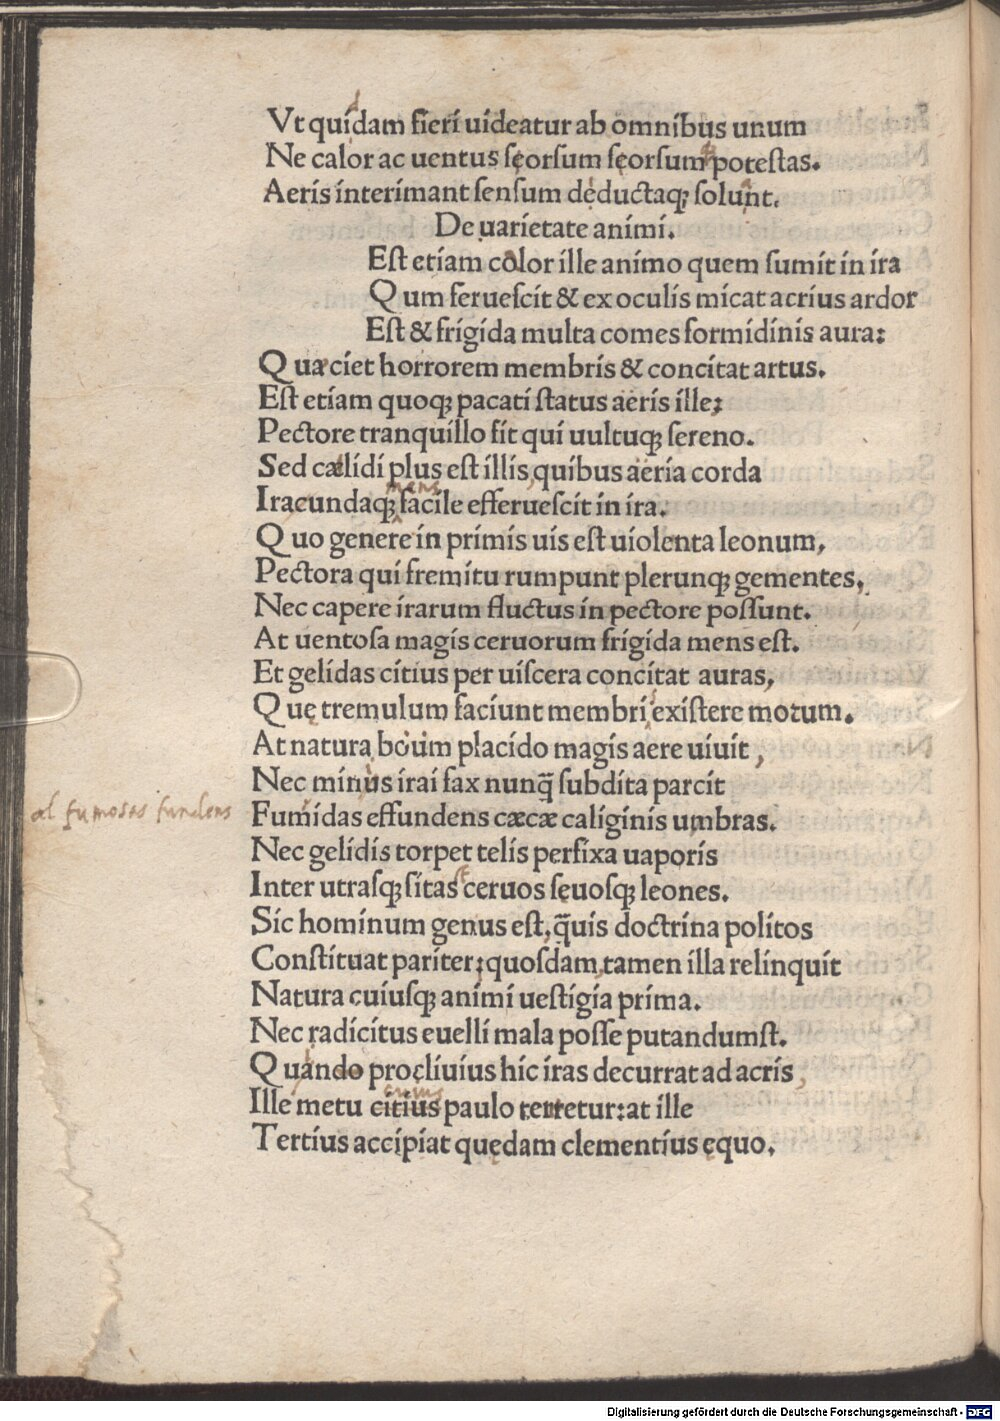 Vt quidam fieri uideatur ab omnibus unum
Ne calor ac uentus seorsum seorsum potestas.
Aeris interimant sensum deductaq; solunt.
De uarietate animi.
Est etiam color ille animo quem sumit in ira
Qum feruescit & ex oculis micat acrius ardor
Est & frigida multa comes formidinis aura:
Qua ciet horrorem membris & concitat artus.
Est etiam quoq; pacati status aeris ille;
Pectore tranquillo fit qui uultuq; sereno.
Sed cælidi plus est illis quibus aeria corda
mens
Iracundaq; facile efferuescit in ira.
Quo genere in primis uis est uiolenta leonum,
Pectora qui fremitu rumpunt plerunq; gementes,
Nec capere irarum fluctus in pectore possunt.
At uentosa magis ceruorum frigida mens est.
Et gelidas citius per uiscera concitat auras,
Quę tremulum faciunt membri existere motum.
At natura boum placido magis aere uiuit,
Nec minus irai fax nunq̄ subdita parcit
al fumosas fundens
Fumidas effundens cæcæ caliginis umbras.
Nec gelidis torpet telis perfixa uaporis
Inter utrasq; sitas ceruos sęuosq; leones.
Sic hominum genus est, q̄uis doctrina politos
Constituat pariter; quosdam tamen illa relinquit
Natura cuiusq; animi uestigia prima.
Nec radicitus euelli mala posse putandumst.
Quando procliuius hic iras decurrat ad acris,
Ille metu citius paulo terretur: at ille
Tertius accipiat quędam clementius ęquo.
Digitalisierung gefördert durch die Deutsche Forschungsgemeinschaft - DFG